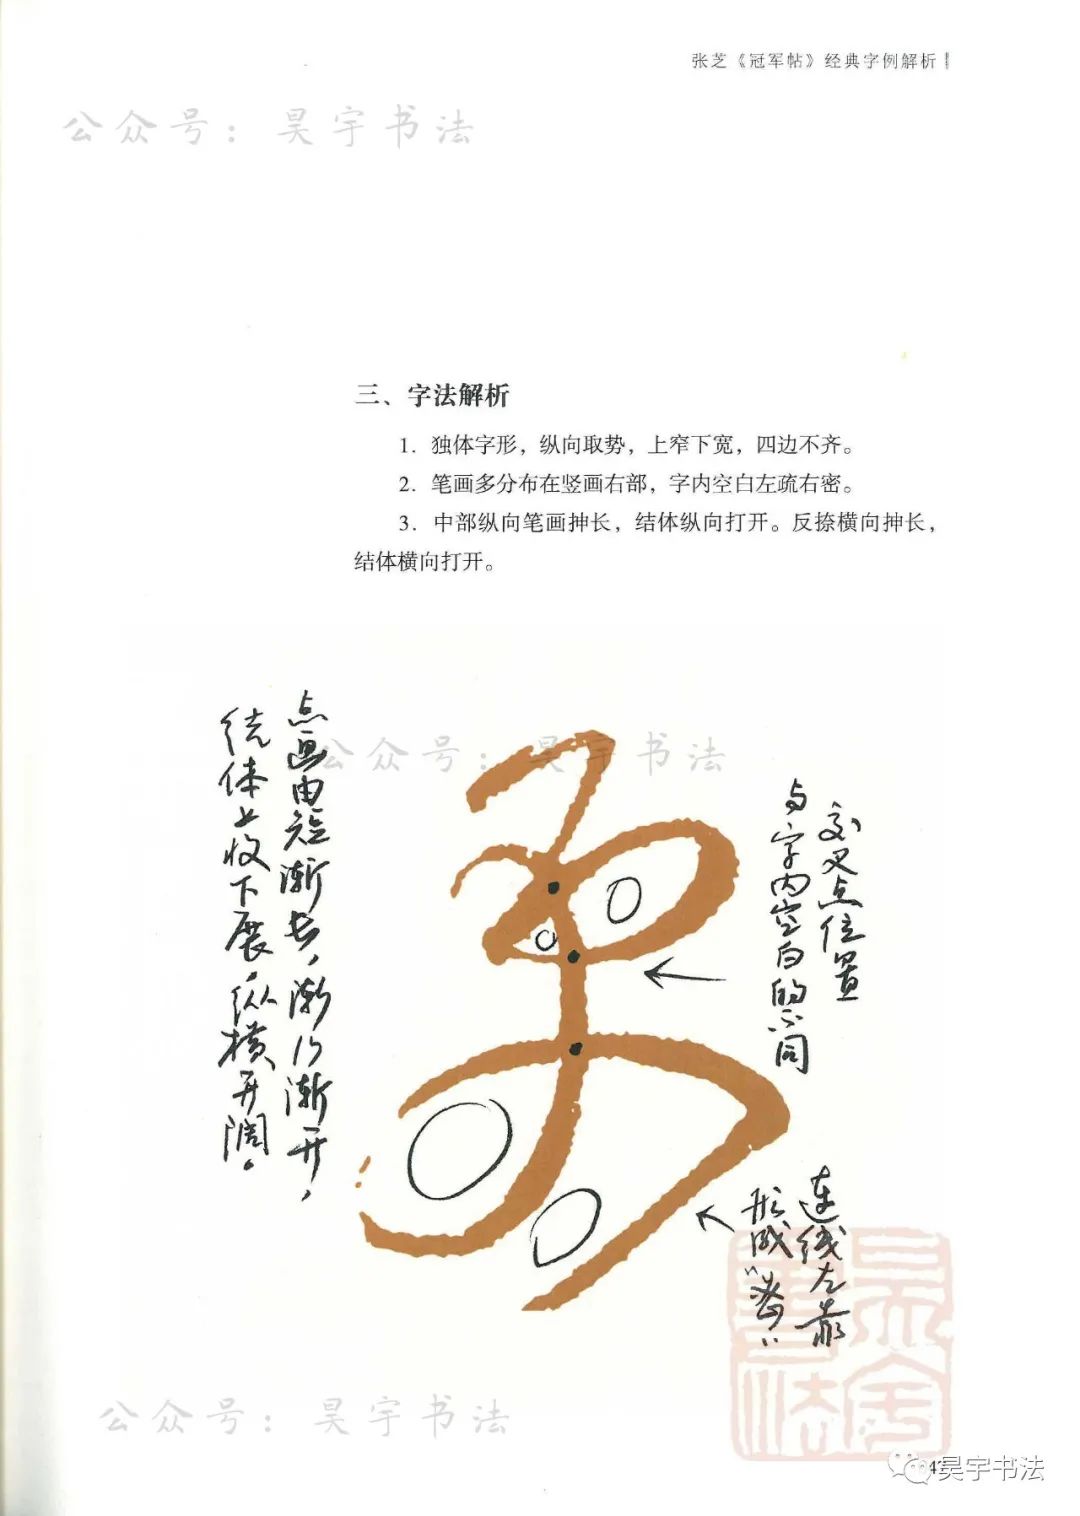 张芝《冠军帖》经典字例解析
公众号：昊宇书法
三、字法解析
1. 独体字形，纵向取势，上窄下宽，四边不齐。
2. 笔画多分布在竖画右部，字内空白左疏右密。
3. 中部纵向笔画抻长，结体纵向打开。反捺横向抻长，
结体横向打开。
公众号：昊宇书法
点画由短渐长，渐行渐开，
结体上收下展，纵横开阔。
交叉点位置
与字内空白的不同
连线左靠
形成“密”
昊宇书法
公众号：昊宇书法
昊宇书法